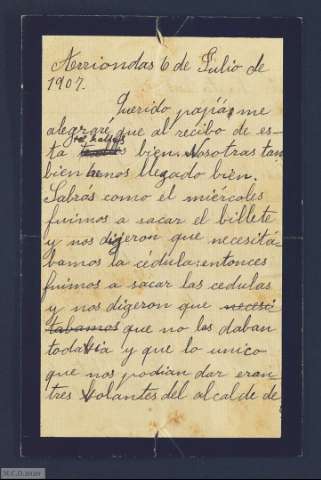 Arriondas 6 de Julio de
1907.
Querido papá, me
alegraré, que al recibo de es-
te halles
ta bien. Nosotras tan
bien hemos llegado bien.
Sabrás como el miércoles
fuimos a sacar el billete
y nos digeron que necesitá-
bamos la cédula: entonces
fuimos a sacar las cedulas
y nos digeron que necesi
tabamos que no las daban
todabia y que lo unico
que nos podian dar eran
tres bolantes del alcalde de